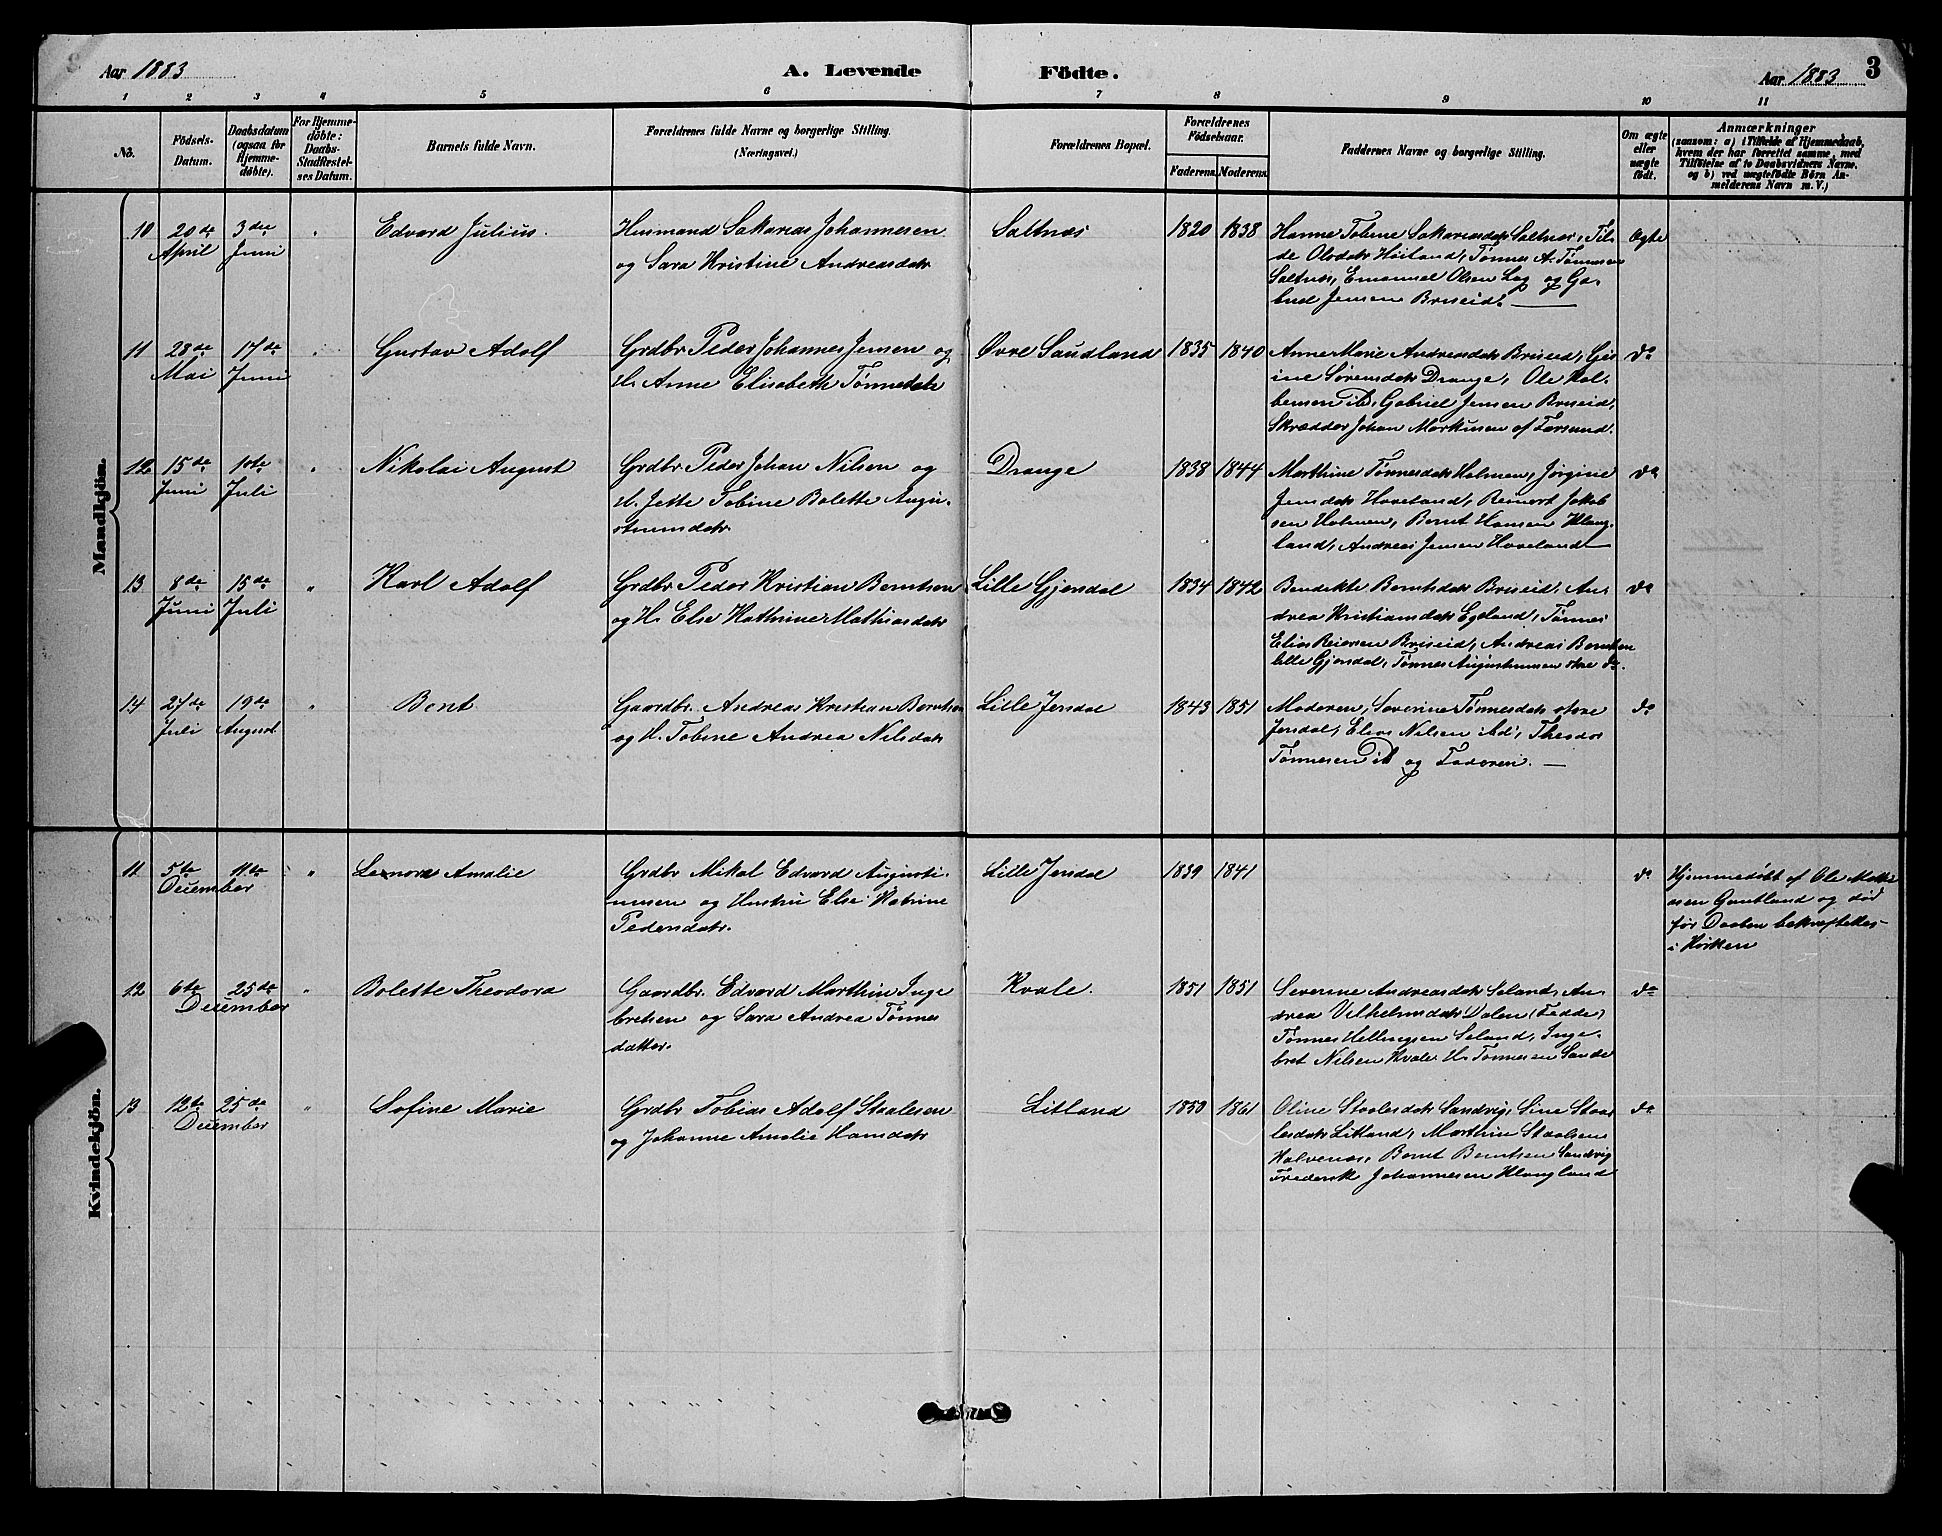 Aar 1883
A. Levende Födte.
Aar 1883
3
1 2 3 4 5 6 7 8 9 10 11
No.
Födsels-
Datum.
Daabsdatum
(ogsaa for
Hjemme-
døbte).
For Hjemme-
døbte:
Daabs-
Stadfæstel-
ses Datum.
Barnets fulde Navn.
Forældrenes fulde Navne og borgerlige Stilling.
(Næringsvei.)
Forældrenes Bopæl.
Forældrenes
Födselsaar.
Faderens. Moderens.
Faddernes Navne og borgerlige Stilling.
Om ægte
eller
uægte
födt.
Anmærkninger
(saasom: a) i Tilfælde af Hjemmedaab,
hvem der har forrettet samme, med
Tilföielse af to Daabsvidners Navne.
og b) ved uægtefödte Börn An-
melderens Navn m. V.)
Mandkjön.
10
20de
April
3die
Juni
"
Edvard Julius.
Husmand Sakarias Johannesen
og Sara Kristine Andreasdatr
Saltnæs
1820 1838
Hanne Tobine Sakariasdatr Saltnæs, Til-
de Olsdatr Høiland, Tønnes A. Tønnesen
Saltnæs, Emanuel Olsen Log og Ga-
briel Jensen Briseid.
Ægte
11
28de
Mai
17de
Juni
"
Gustav Adolf
Grdbr Peder Johannes Jensen og
H. Anne Elisabeth Tønnesdatr
Øvre Saudland
1835 1840
Anne Marie Andreasdatr Briseid, Gis
ine Sørensdatr Drange, Ole Kol-
bensen ib, Gabriel Jensen Briseid,
Skrædder Johan Markusen af Farsund.
do
12
15de
Juni
10te
Juli
"
Nikolai August
Grdbr Peder Johan Nilsen og
H. Jette Tobine Bolette Augu-
stinusdatr.
Drange
1838 1844
Marthine Tønnesdatr Holmen, Jørgine
Jensdatr Hoveland, Reinert Jakob
sen Holmen, Bernt Hansen Klung-
land, Andreas Jensen Hoveland
do
13
8de
Juni
15de
Juli
"
Karl Adolf
Grdbr Peder Kristian Berntsen
og H. Else Kathrine Mathiasdatr
Lille Gjersdal
1834 1842
Bendikte Berntsdatr Briseid, An-
drea Kristiansdatr Egeland, Tønnes
Elias Reiersen Briseid, Andreas Berntsen
lille Gjersdal, Tønnes Augustinussen store do.
do
14
27de
Juli
19de
August
"
Bent
Gaardbr. Andreas Kristian Berntsen
og H. Tobine Andrea Nilsdatr
Lille Jersdal
1843 1851
Moderen, Severine Tønnesdatr store
Jersdal, Elias Nilsen ibd, Theodor
Tønnesen ib og Faderen.
do
Kvindekjön.
11
5te 11te
December
"
Lenora Amalie
Grdbr Mikal Edvard Augusti-
nussen og Hustru Else Katrine
Pedersdatr.
Lille Jersdal
1839 1841
do
Hjemmedøbt af Ole Mathi
asen Gautland og død
før Daaben bekræftedes
i Kirken
12
6te 25de
December
"
Bolette Theodora
Gaardbr. Edvard Marthin Inge
bretsen og Sara Andrea Tønnes
datter.
Kvale.
1851 1851
Severine Andreasdatr Seland, An-
drea Vilhelmsdatr Dalen (Fedde)
Tønnes Hellingsen Seland, Inge-
bret Nilsen Kvale H. Tønnesen Sande
do
13
12te 25de
December
"
Sofine Marie
Grdbr Tobias Adolf Staalesen
og Johanne Amalie Hansdatr
Litland
1850 1861
Oline Staalesdatr Sandvig, Sine Staa
lesdatr Litland, Marthin Staalsen
Halvenæs, Bernt Berntsen Sandvig
Frederik Johannesen Klungland
do